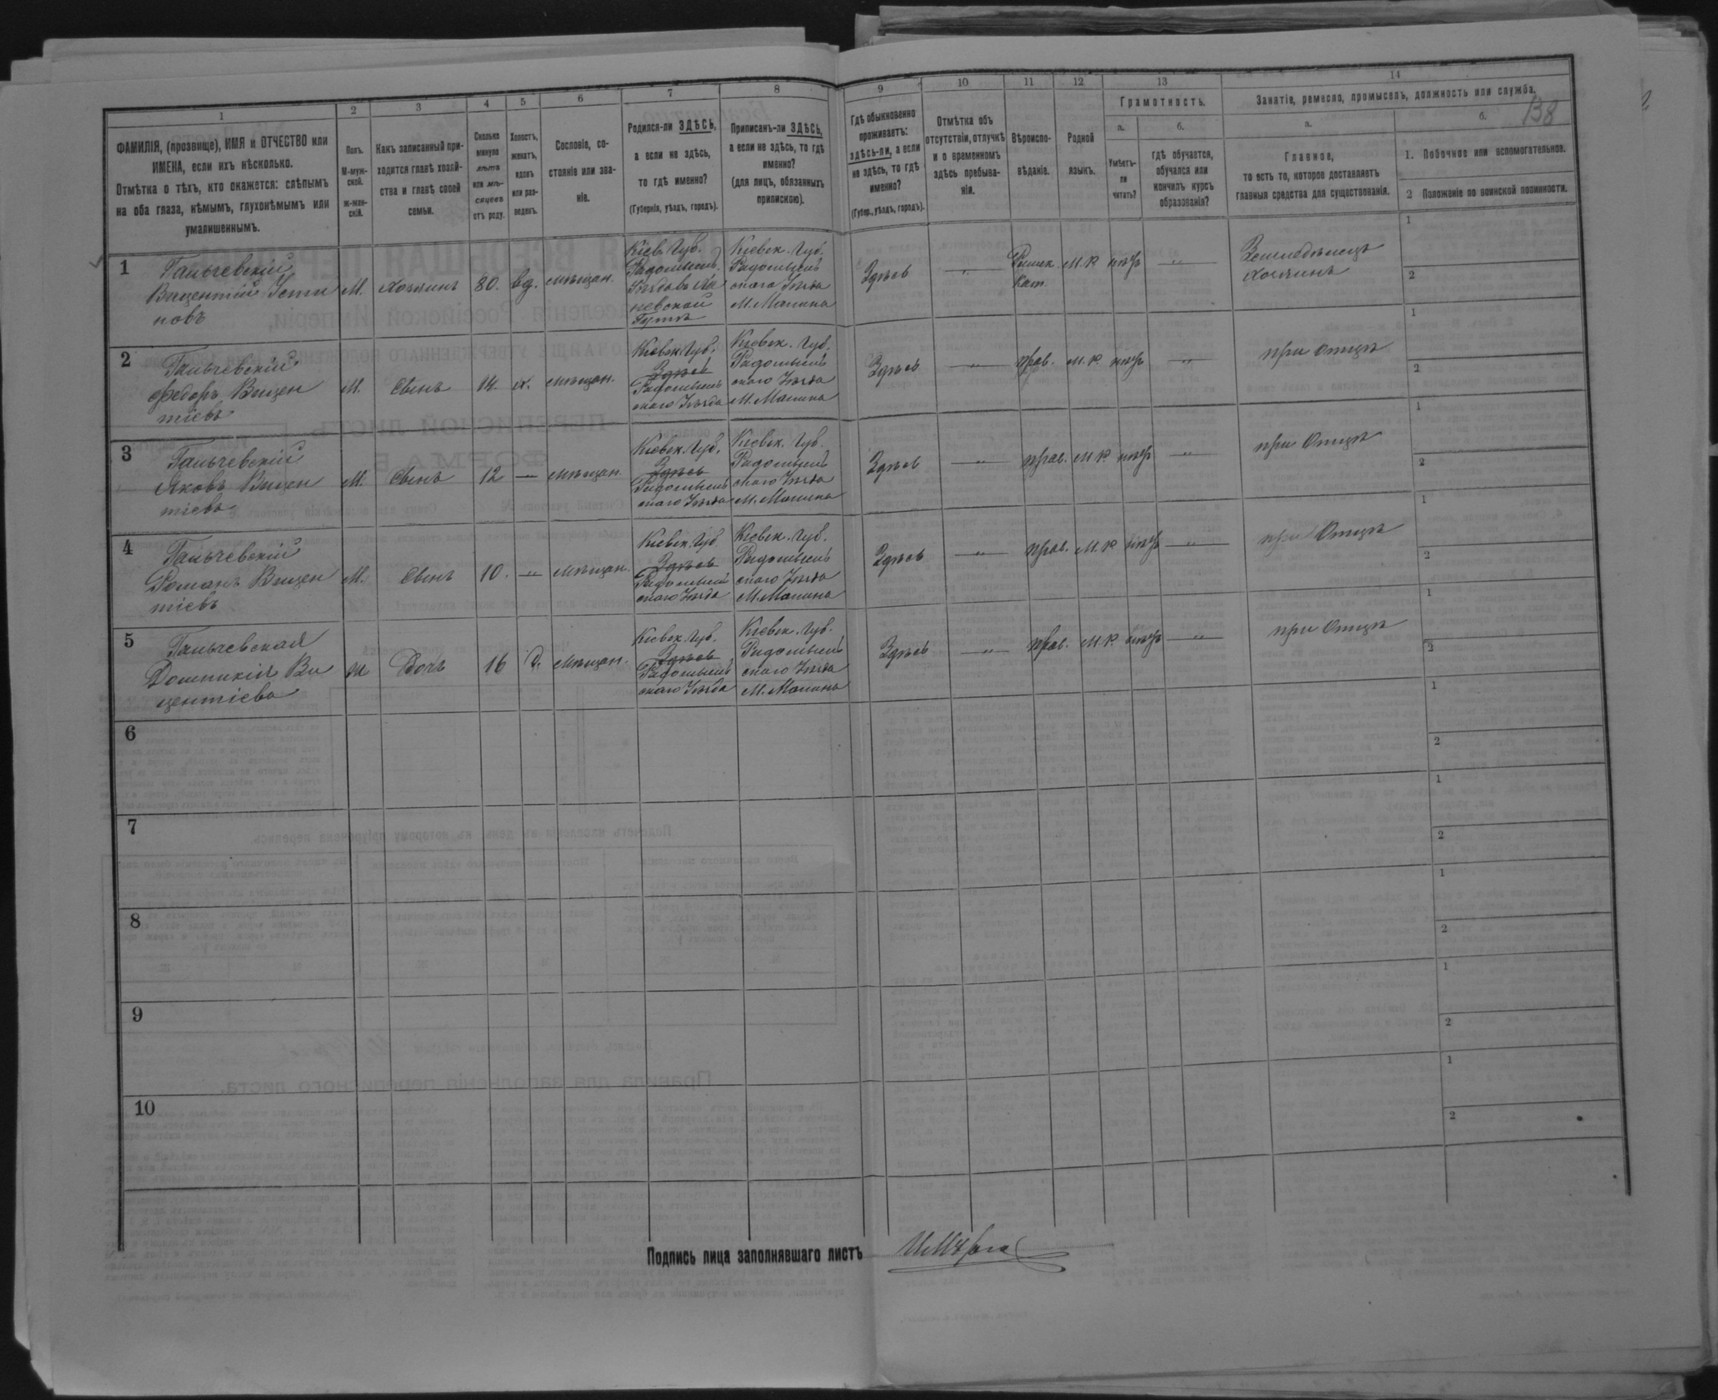 138
1 2 3 4 5 6 7 8 9 10 11 12 13 14
ФАМИЛІЯ, (прозвище), ИМЯ и ОТЧЕСТВО или
ИМЕНА, если ихъ нѣсколько.
Отмѣтка о тѣхъ, кто окажется: слѣпымъ
на оба глаза, нѣмымъ, глухонѣмымъ или
умалишеннымъ.
Полъ.
М-муж-
ской.
ж-жен-
скій.
Какъ записанный при-
ходится главѣ хозяй-
ства и главѣ своей
семьи.
Сколько
минуло
лѣтъ
или мѣ-
сяцевъ
отъ роду.
Холостъ,
женатъ,
вдовъ
или раз-
веденъ.
Сословіе, со-
стояніе или зва-
ніе.
Родился-ли ЗДѢСЬ,
а если не здѣсь,
то гдѣ именно?
(Губернія, уѣздъ, городъ).
Приписанъ-ли ЗДѢСЬ,
а если не здѣсь, то гдѣ
именно?
(для лицъ, обязанныхъ
припискою).
Гдѣ обыкновенно
проживаетъ:
здѣсь-ли, а если
не здѣсь, то гдѣ
именно?
(Губер., уѣздъ, городъ).
Отмѣтка объ
отсутствіи, отлучкѣ
и о временномъ
здѣсь пребыва-
ніи.
Вѣроиспо-
вѣданіе.
Родной
языкъ.
Грамотность.
а.
Умѣетъ-
ли
читать?
б.
гдѣ обучается,
обучался или
кончилъ курсъ
образованія?
Занятіе, ремесло, промыселъ, должность или служба.
а.
Главное,
то есть то, которое доставляетъ
главныя средства для существованія.
б.
1. Побочное или вспомогательное.
2 Положеніе по воинской повинности.
1
Викентій Усти
новъ
М.
Хозяинъ
80.
вд.
мѣщан.
Кіев. Губ.
Кіевск. Губ.
скаго Уѣзда
М. Малина
Здѣсь
Римск
Кат.
М. Р
нѣтъ
Земледѣлецъ
Хозяинъ
1
2
2
Федоръ Викен
тіевъ
М.
Сынъ
14
х.
мѣщан.
Кіевск. Губ.
Здѣсь
Радомысль
скаго Уѣзда
Кіевск. Губ.
Радомысль
скаго Уѣзда
М. Малина
Здѣсь
прав.
М. Р
нѣтъ
при Отцѣ
1
2
3
Яковъ Викен
тіевъ
М.
Сынъ
12
мѣщан.
Кіевск. Губ.
Здѣсь
Радомысль
скаго Уѣзда
Кіевск. Губ.
Радомысль
скаго Уѣзда
М. Малина
Здѣсь
прав.
М. Р
нѣтъ
при Отцѣ
1
2
4
Романъ Викен
тіевъ
М.
Сынъ
10.
мѣщан.
Кіевск. Губ
Здѣсь
Радомысль
скаго Уѣзда
Кіевск. Губ.
Радомысль
скаго Уѣзда
М. Малина
Здѣсь
прав.
М. Р
нѣтъ
при Отцѣ
1
2
5
Домникія Ви
кентіева
ж
Дочь
16
д.
мѣщан.
Кіевск. Губ.
Здѣсь
Радомысль
скаго Уѣзда
Кіевск. Губ.
Радомысль
скаго Уѣзда
М. Малина
Здѣсь
прав.
М. Р
нѣтъ
при Отцѣ
1
2
6
1
2
7
1
2
8
1
2
9
1
2
10
1
2
Подпись лица заполнявшаго листъ